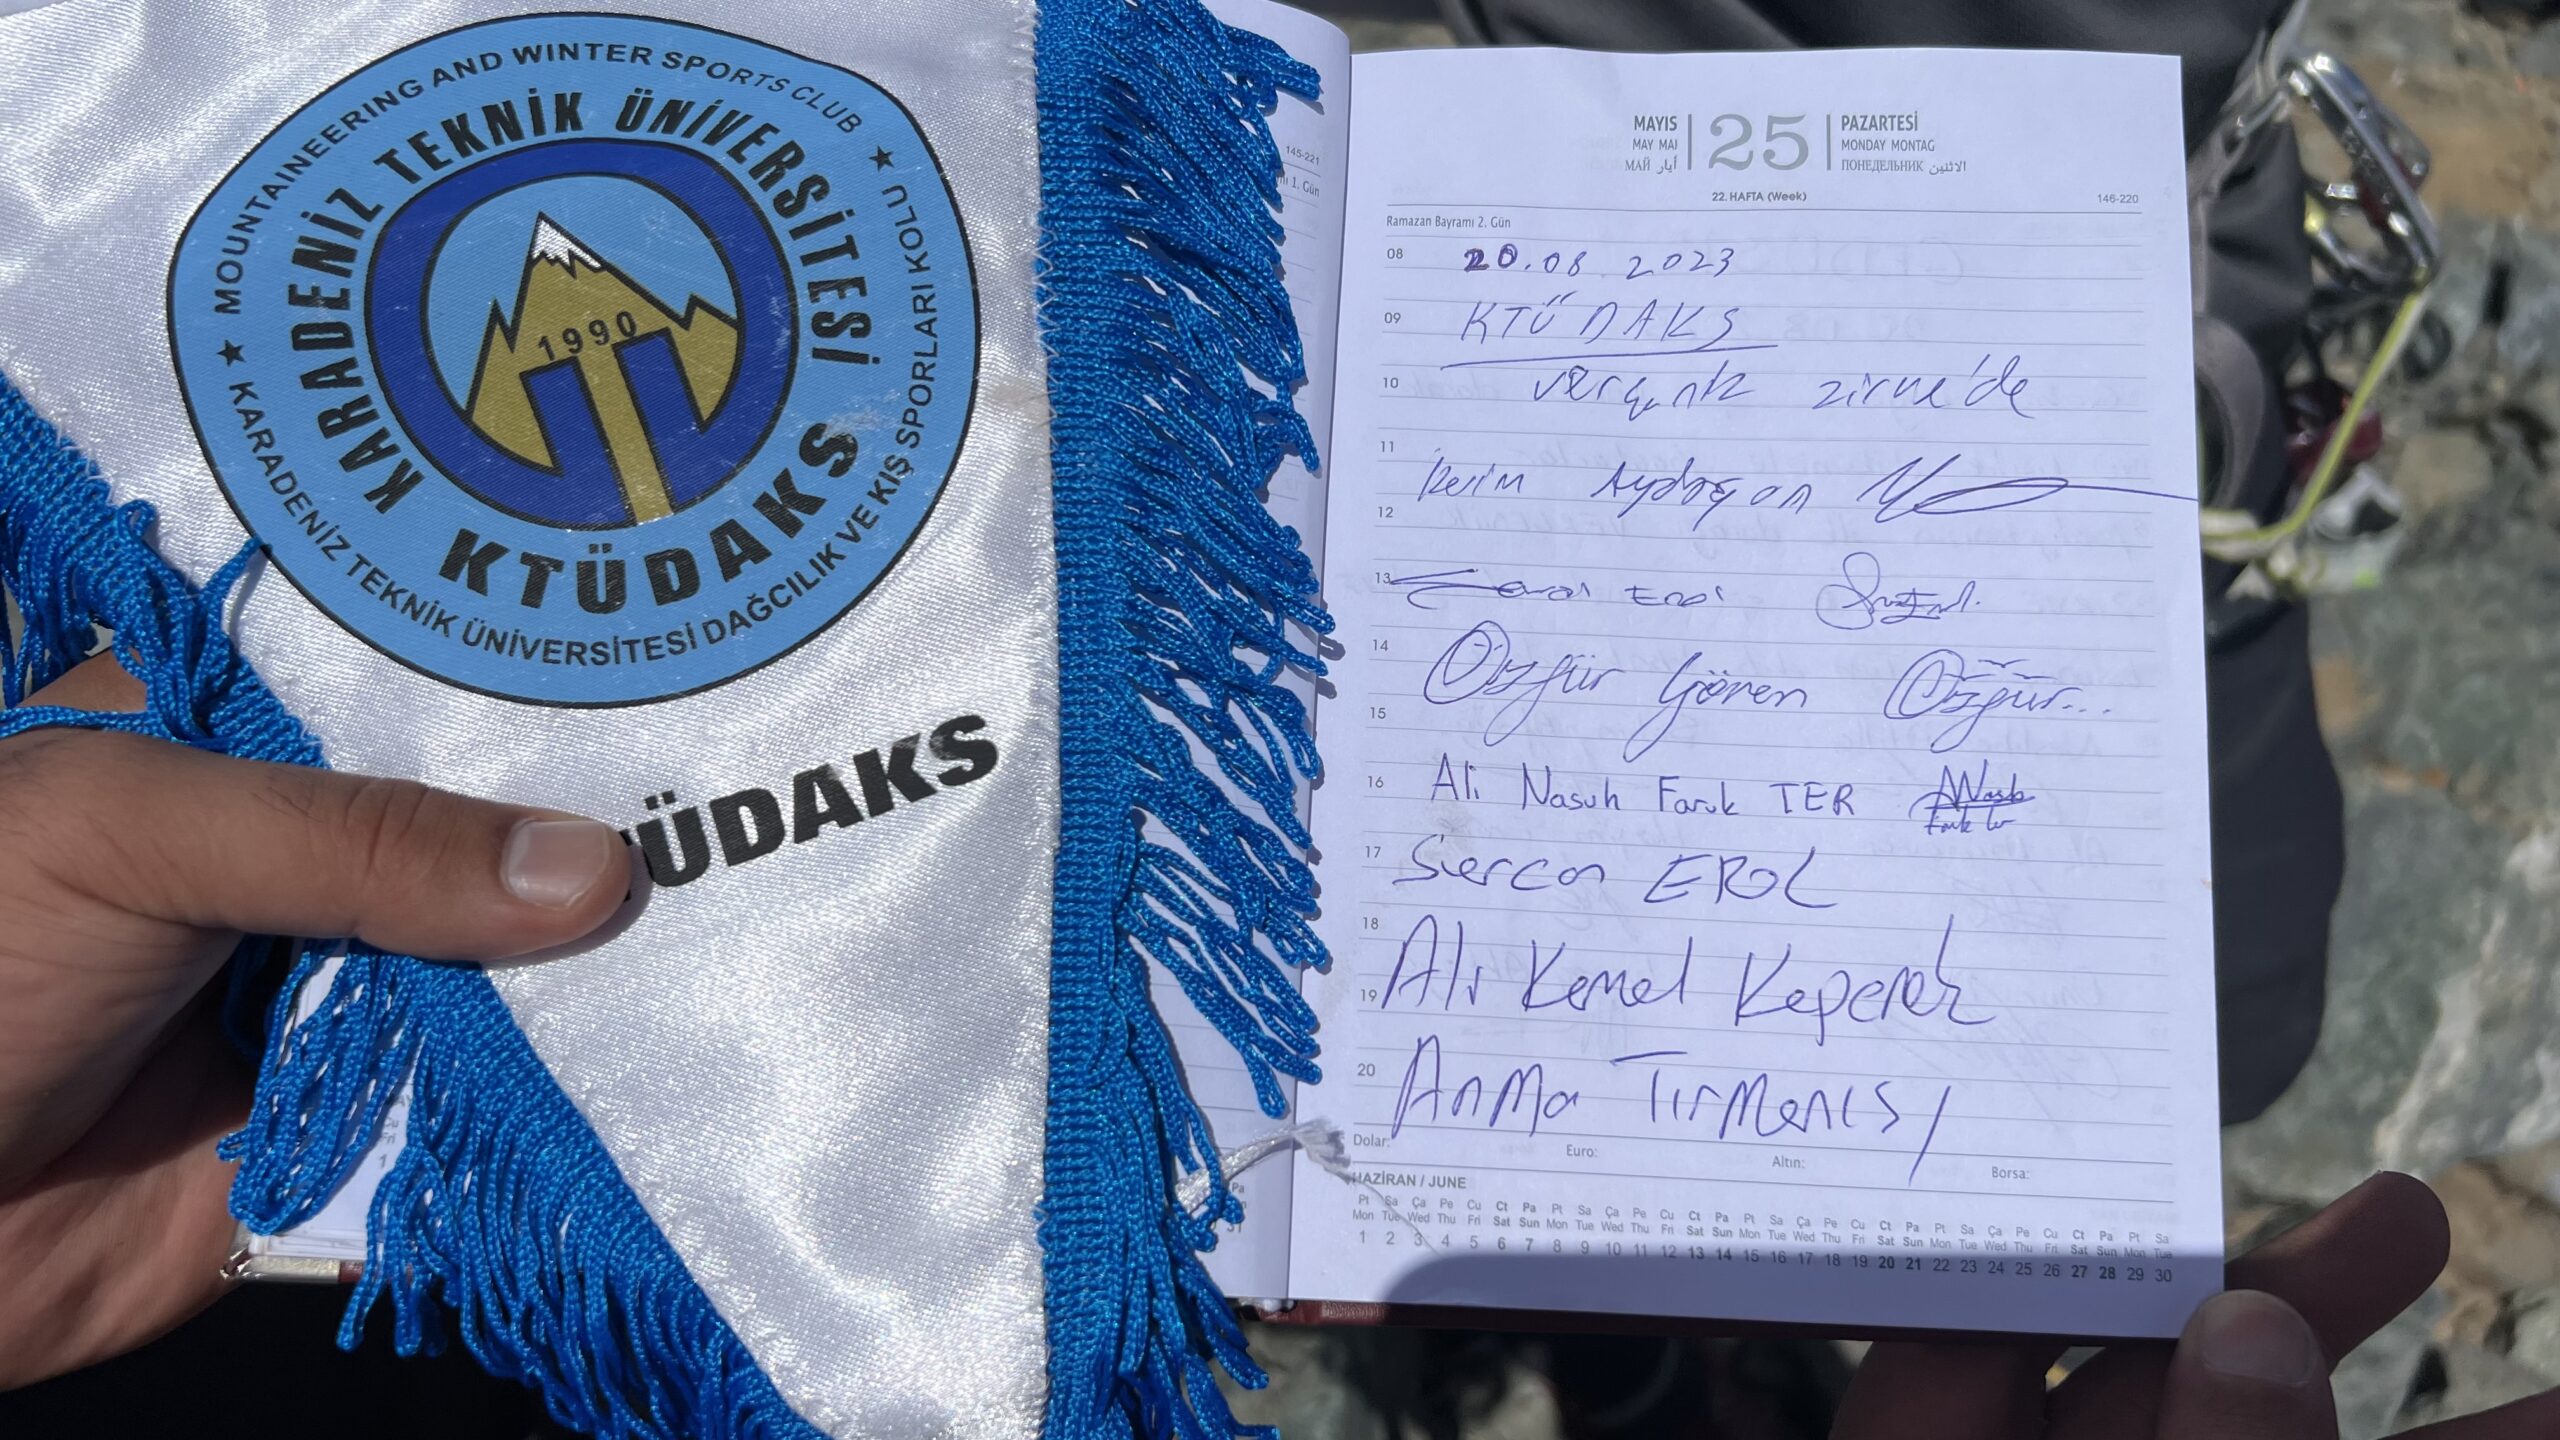 MOUNTAINEERING AND WINTER SPORTS CLUB
KARADENİZ TEKNİK ÜNİVERSİTESİ
1990
KTÜDAKS
KARADENİZ TEKNİK ÜNİVERSİTESİ DAĞCILIK VE KIŞ SPORLARI KOLU
TÜDAKS
145-221
1. Gün
MAYIS 25 PAZARTESİ
MAY MAI MONDAY MONTAG
МАЙ أيار ПОНЕДЕЛЬНИК الاثنين
22. HAFTA (Week)
146-220
Ramazan Bayramı 2. Gün
08 20.08.2023
09 KTÜDAKS
10 zirve'de
11 Kerim Aydoğan
12
13
14 Özgür Gören Özgür...
15
16 Ali Nasuh Faruk TER
17 Sercan EROL
18
19 Ali Kemal
20
Dolar: Euro: Altın: Borsa:
HAZİRAN / JUNE
Pt Sa Ça Pe Cu Ct Pa Pt Sa Ça Pe Cu Ct Pa Pt Sa Ça Pe Cu Ct Pa Pt Sa Ça Pe Cu Ct Pa Pt Sa
Mon Tue Wed Thu Fri Sat Sun Mon Tue Wed Thu Fri Sat Sun Mon Tue Wed Thu Fri Sat Sun Mon Tue Wed Thu Fri Sat Sun Mon Tue
1 2 3 4 5 6 7 8 9 10 11 12 13 14 15 16 17 18 19 20 21 22 23 24 25 26 27 28 29 30